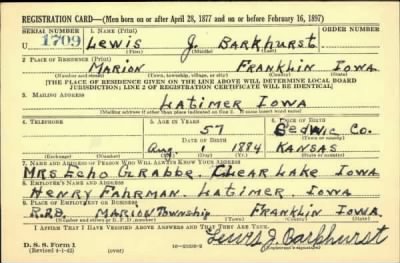 REGISTRATION CARD—(Men born on or after April 28, 1877 and on or before February 16, 1897)
SERIAL NUMBER 1. NAME (Print) ORDER NUMBER
U 1709 Lewis J. Barkhurst
(First) (Middle) (Last)
2. PLACE OF RESIDENCE (Print)
Marion Franklin Iowa
(Number and street) (Town, township, village, or city) (County) (State)
[THE PLACE OF RESIDENCE GIVEN ON THE LINE ABOVE WILL DETERMINE LOCAL BOARD
JURISDICTION; LINE 2 OF REGISTRATION CERTIFICATE WILL BE IDENTICAL]
3. MAILING ADDRESS
Latimer Iowa
[Mailing address if other than place indicated on line 2. If same insert word same]
4. TELEPHONE 5. AGE IN YEARS 6. PLACE OF BIRTH
57 Sedwic Co.
DATE OF BIRTH (Town or county)
Aug 1 1884 Kansas
(Exchange) (Number) (Mo.) (Day) (Yr.) (State or country)
7. NAME AND ADDRESS OF PERSON WHO WILL ALWAYS KNOW YOUR ADDRESS
Mrs Echo Grabbe. Clear Lake Iowa
8. EMPLOYER'S NAME AND ADDRESS
Henry Fahrman. Latimer. Iowa
9. PLACE OF EMPLOYMENT OR BUSINESS
Marion Township Franklin Iowa
(Number and street or R. F. D. number) (Town) (County) (State)
I AFFIRM THAT I HAVE VERIFIED ABOVE ANSWERS AND THAT THEY ARE TRUE.
D. S. S. Form 1
(Revised 4-1-42) (over) Lewis J. Barkhurst
(Registrant's signature)